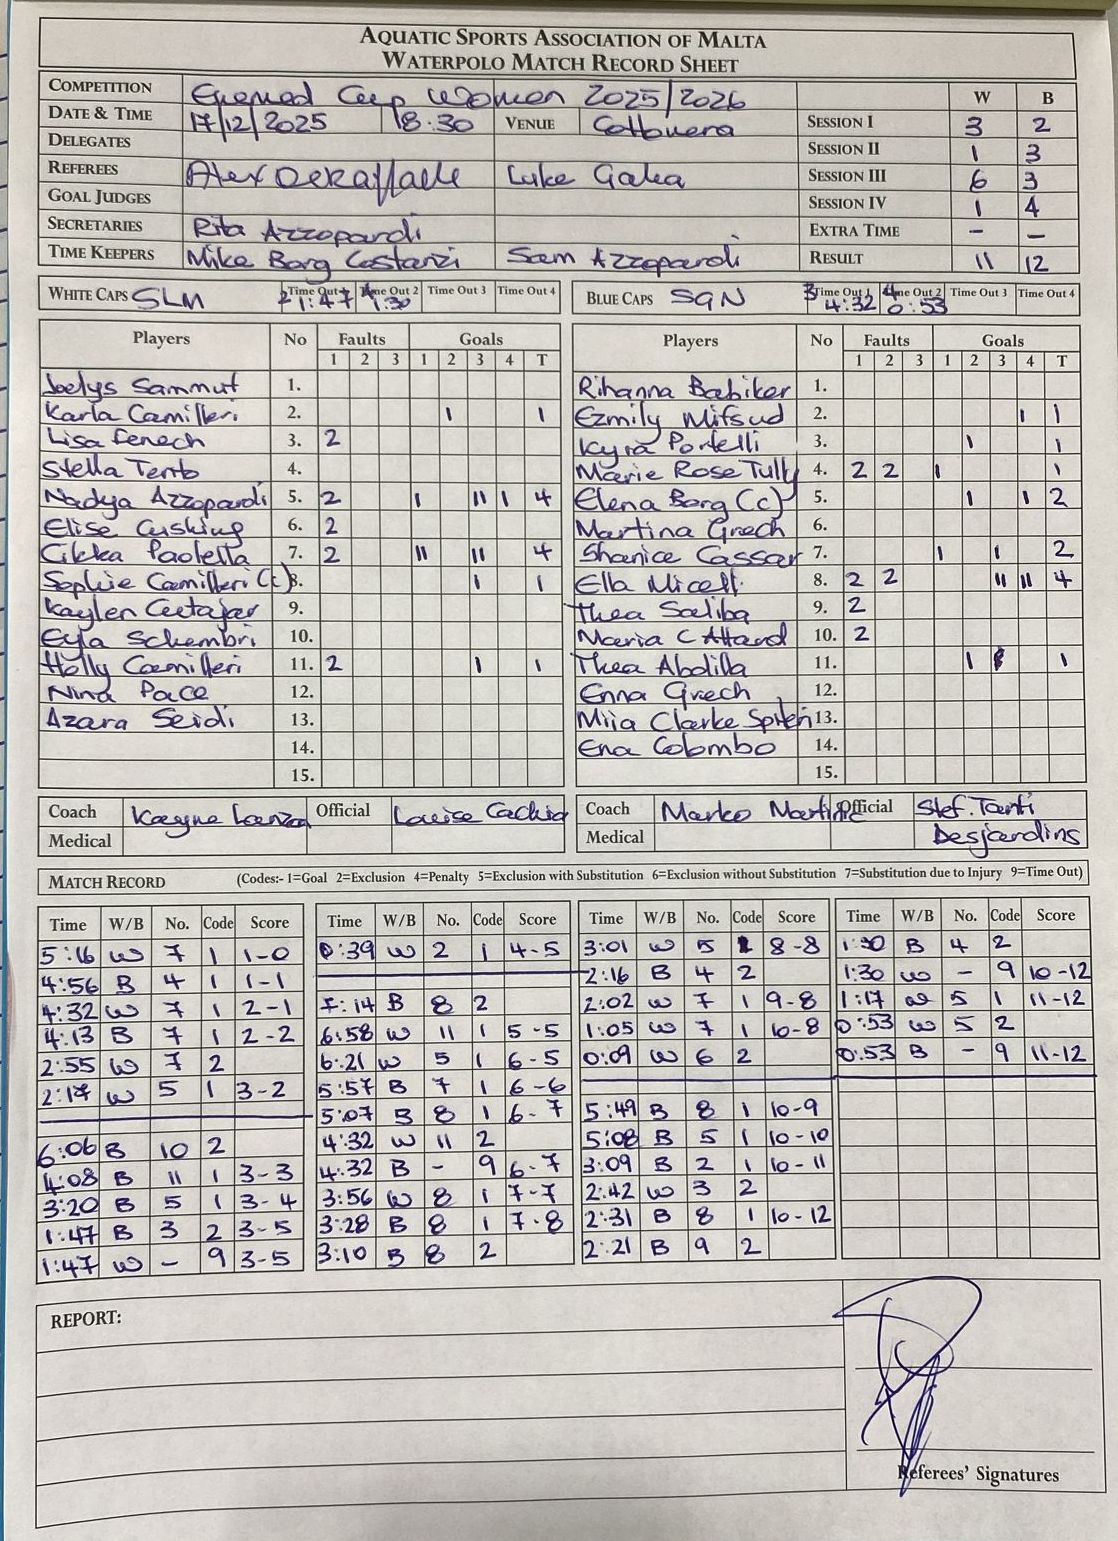 AQUATIC SPORTS ASSOCIATION OF MALTA
WATERPOLO MATCH RECORD SHEET
COMPETITION Enemed Cup Women 2025/2026 W B
DATE & TIME 17/12/2025 18:30 VENUE Cottonera SESSION I 3 2
DELEGATES SESSION II 1 3
REFEREES Alex DeRaffaele Luke Galea SESSION III 6 3
GOAL JUDGES SESSION IV 1 4
SECRETARIES Rita Azzopardi EXTRA TIME - -
TIME KEEPERS Mike Borg Costanzi Sam Azzopardi RESULT 11 12
WHITE CAPS SLM Time Out 1 2 1:47 Time Out 2 4 1:30 Time Out 3 Time Out 4
BLUE CAPS SGN Time Out 1 3 4:32 Time Out 2 4 0:53 Time Out 3 Time Out 4
Players No Faults Goals
1 2 3 1 2 3 4 T
Joelys Sammut 1.
Karla Camilleri 2. 1 1
Lisa Fenech 3. 2
Stella Tento 4.
Nadya Azzopardi 5. 2 1 11 1 4
Elise Cushing 6. 2
Cikka Paolella 7. 2 11 11 4
Sophie Camilleri (c) 8. 1 1
Kaylen Cutajar 9.
Eyla Schembri 10.
Holly Camilleri 11. 2 1 1
Nina Pace 12.
Azara Seidi 13.
14.
15.
Players No Faults Goals
1 2 3 1 2 3 4 T
Rihanna Babiker 1.
Ezmily Mifsud 2. 1 1
Kyra Portelli 3. 1 1
Marie Rose Tully 4. 2 2 1 1
Elena Borg (c) 5. 1 1 2
Martina Grech 6.
Shanice Cassar 7. 1 1 2
Ella Micall. 8. 2 2 11 11 4
Thea Saliba 9. 2
Maria C Attard 10. 2
Thea Abdilla 11. 1 1
Enna Grech 12.
Miia Clarke Spiteri 13.
Ena Colombo 14.
15.
Coach Kayne Lanzon Official Louise Cachia
Medical
Coach Marko Martinic Official Stef. Tanti
Medical Desjardins
MATCH RECORD (Codes:- 1=Goal 2=Exclusion 4=Penalty 5=Exclusion with Substitution 6=Exclusion without Substitution 7=Substitution due to Injury 9=Time Out)
Time W/B No. Code Score
5:16 W 7 1 1-0
4:56 B 4 1 1-1
4:32 W 7 1 2-1
4:13 B 7 1 2-2
2:55 W 7 2
2:17 W 5 1 3-2
6:06 B 10 2
4:08 B 11 1 3-3
3:20 B 5 1 3-4
1:47 B 3 2 3-5
1:47 W - 9 3-5
Time W/B No. Code Score
0:39 W 2 1 4-5
7:14 B 8 2
6:58 W 11 1 5-5
6:21 W 5 1 6-5
5:57 B 7 1 6-6
5:07 B 8 1 6-7
4:32 W 11 2
4:32 B - 9 6-7
3:56 W 8 1 7-7
3:28 B 8 1 7-8
3:10 B 8 2
Time W/B No. Code Score
3:01 W 5 1 8-8
2:16 B 4 2
2:02 W 7 1 9-8
1:05 W 7 1 10-8
0:09 W 6 2
5:49 B 8 1 10-9
5:08 B 5 1 10-10
3:09 B 2 1 10-11
2:42 W 3 2
2:31 B 8 1 10-12
2:21 B 9 2
Time W/B No. Code Score
1:30 B 4 2
1:30 W - 9 10-12
1:17 W 5 1 11-12
0:53 W 5 2
0:53 B - 9 11-12
REPORT:
Referees' Signatures